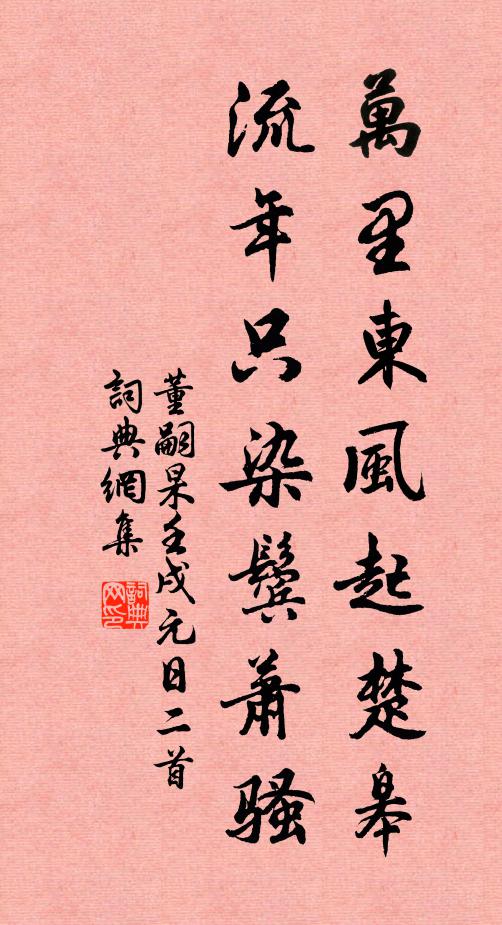 萬里東風起楚皋
流年只染鬢蕭騷
董嗣杲壬戌元日二首
詞典網集
詞典网印